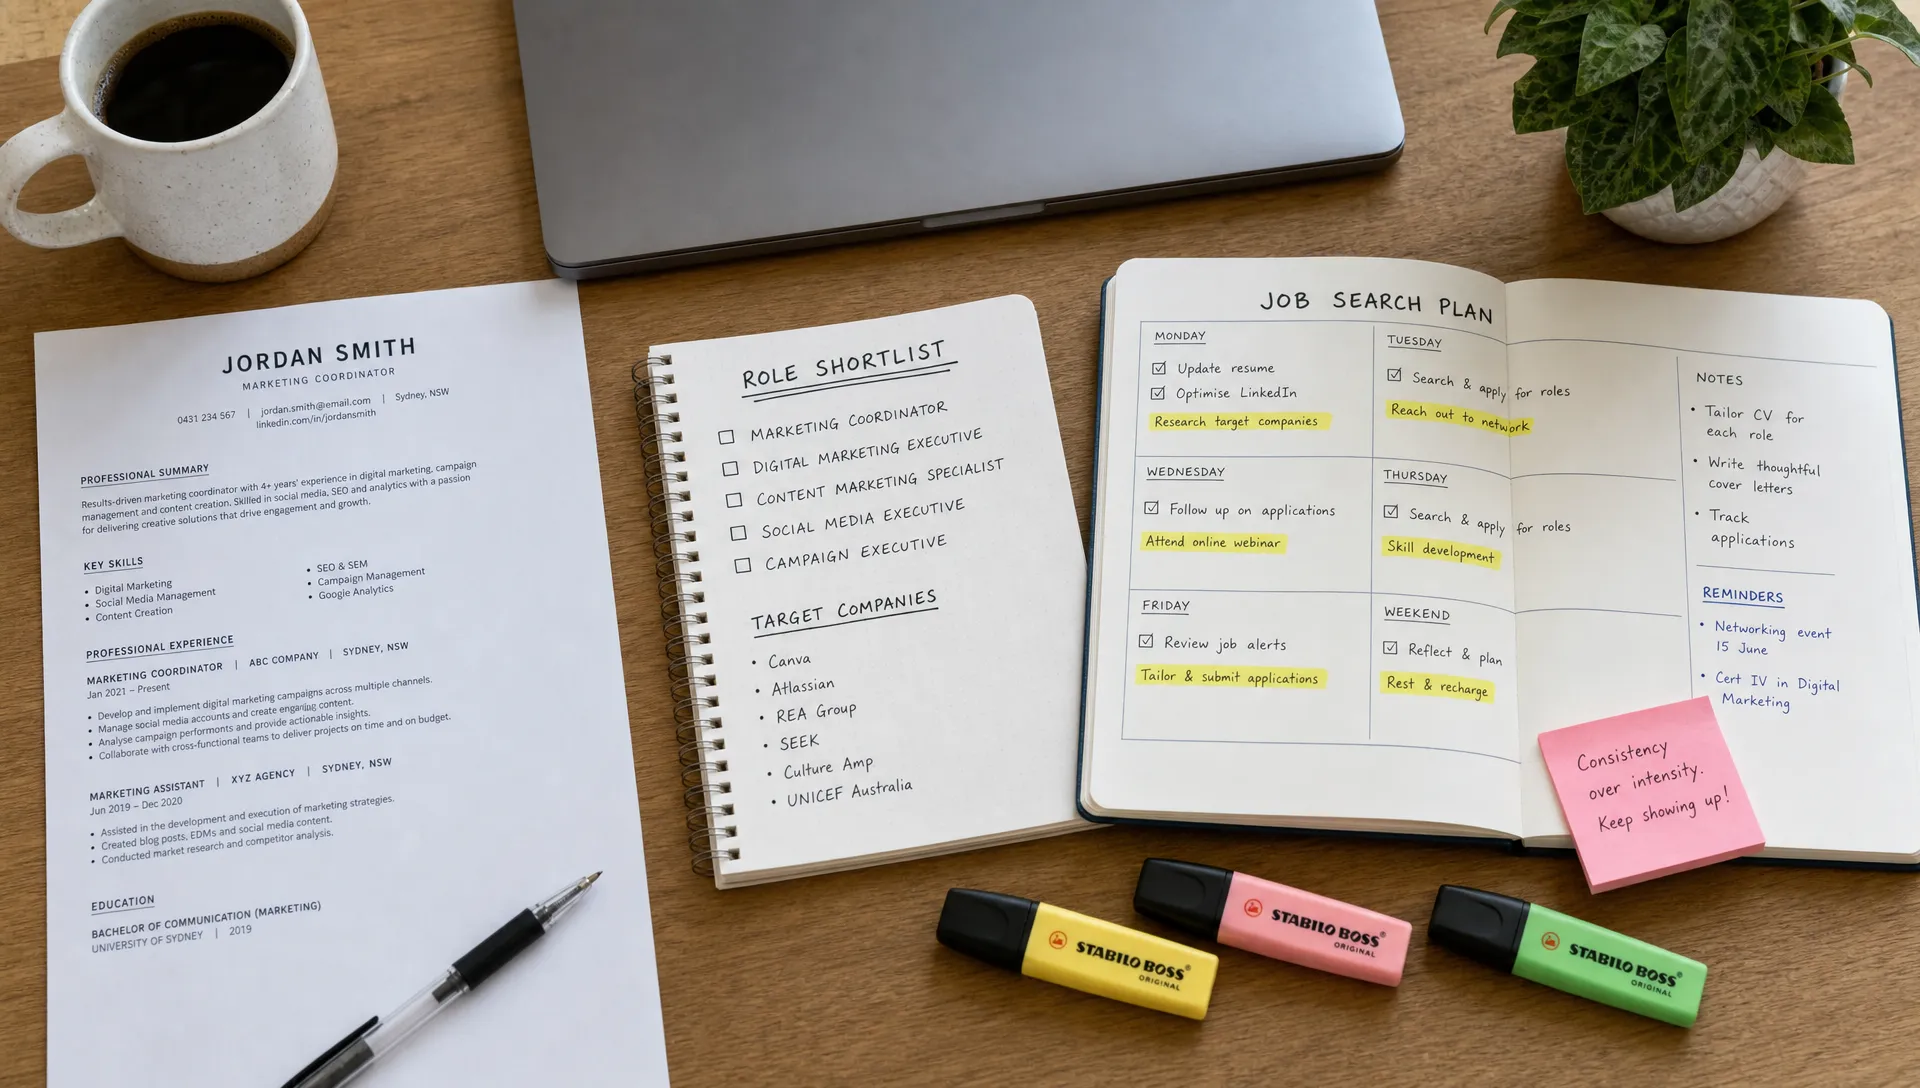 JORDAN SMITH
MARKETING COORDINATOR
0431 234 567 | jordan.smith@email.com | Sydney, NSW
linkedin.com/in/jordansmith
PROFESSIONAL SUMMARY
Results-driven marketing coordinator with 4+ years' experience in digital marketing, campaign
management and content creation. Skilled in social media, SEO and analytics with a passion
for delivering creative solutions that drive engagement and growth.
KEY SKILLS
• Digital Marketing
• Social Media Management
• Content Creation
• SEO & SEM
• Campaign Management
• Google Analytics
PROFESSIONAL EXPERIENCE
MARKETING COORDINATOR | ABC COMPANY | SYDNEY, NSW
Jan 2021 – Present
• Develop and implement digital marketing campaigns across multiple channels.
• Manage social media accounts and create engaging content.
• Analyse campaign performonts and provide actionable insights.
• Collaborate with cross-functional teams to deliver projects on time and on budget.
MARKETING ASSISTANT | XYZ AGENCY | SYDNEY, NSW
Jun 2019 – Dec 2020
• Assisted in the development and execution of marketing strategies.
• Created blog posts, EDMs and social media content.
• Conducted market research and competitor analysis.
EDUCATION
BACHELOR OF COMMUNICATION (MARKETING)
UNIVERSITY OF SYDNEY | 2019
ROLE SHORTLIST
MARKETING COORDINATOR
DIGITAL MARKETING EXECUTIVE
CONTENT MARKETING SPECIALIST
SOCIAL MEDIA EXECUTIVE
CAMPAIGN EXECUTIVE
TARGET COMPANIES
• Canva
• Atlassian
• REA Group
• SEEK
• Culture Amp
• UNICEF Australia
JOB SEARCH PLAN
MONDAY
Update resume
Optimise LinkedIn
Research target companies
TUESDAY
Search & apply for roles
Reach out to network
WEDNESDAY
Follow up on applications
Attend online webinar
THURSDAY
Search & apply for roles
Skill development
FRIDAY
Review job alerts
Tailor & submit applications
WEEKEND
Reflect & plan
Rest & recharge
NOTES
• Tailor CV for
each role
• Write thoughtful
cover letters
• Track
applications
REMINDERS
• Networking event
15 June
• Cert IV in Digital
Marketing
Consistency
over intensity.
Keep showing up!
STABILO BOSS®
ORIGINAL
STABILO BOSS®
ORIGINAL
STABILO BOSS®
ORIGINAL